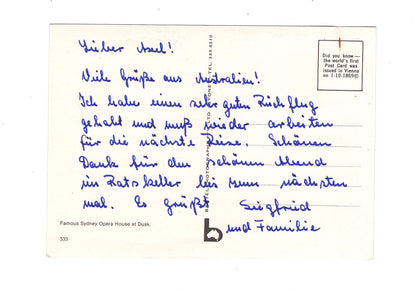 Lieber Axel!
Viele Grüße aus Australien!
Ich habe einen sehr guten Rückflug
gehabt und muß wieder arbeiten
für die nächste Reise. Schönen
Dank für den schönen Abend
im Ratskeller bis zum nächsten
mal. Es Grüßt Siegfried
und Familie
Did you know —
the world's first
Post Card was
issued in Vienna
on 1-10-1869!
Famous Sydney Opera House at Dusk.
333
b